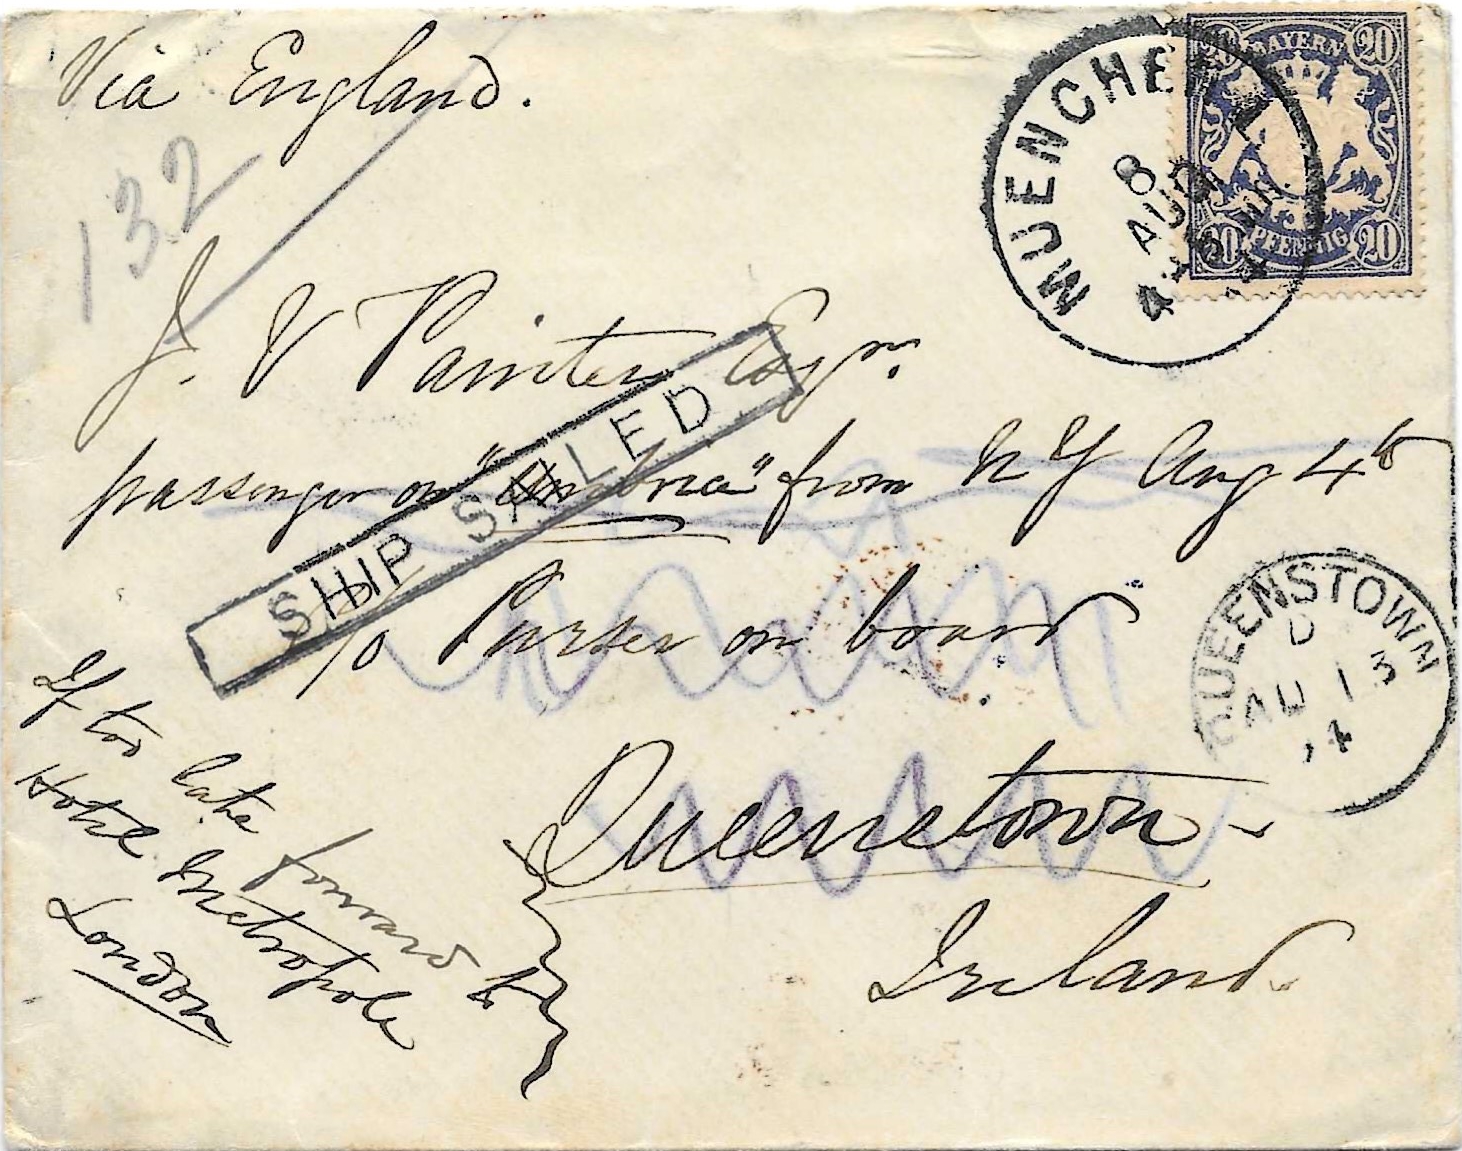 Via England.
132
MUENCHEN
8
AUG
4
20 BAYERN 20
20 PFENNIG 20
J. V Painter Esqr.
passenger on "Umbria" from N Y Aug 4th
SHIP SAILED
c/o Purser on board
QUEENSTOWN
D
AU 13
94
Queenstown
Ireland.
If too late forward to
Hotel Metropole
London